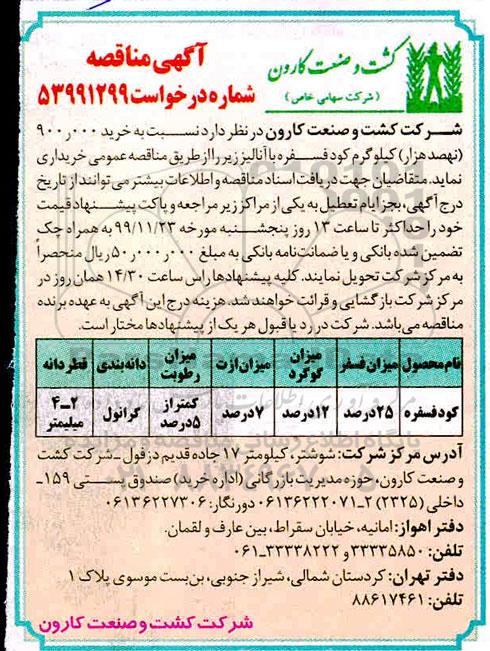 کشت و صنعت کارون
(شرکت سهامی خاص)
آگهی مناقصه
شماره درخواست ۵۳۹۹۱۲۹۹
شرکت کشت و صنعت کارون در نظر دارد نسبت به خرید ۹۰۰ر۰۰۰
(نهصد هزار) کیلوگرم کود فسفره با آنالیز زیر را از طریق مناقصه عمومی خریداری
نماید. متقاضیان جهت دریافت اسناد مناقصه و اطلاعات بیشتر می‌توانند از تاریخ
درج آگهی، بجز ایام تعطیل به یکی از مراکز زیر مراجعه و پاکت پیشنهاد قیمت
خود را حداکثر تا ساعت ۱۳ روز پنجشنبه مورخه ۹۹/۱۱/۲۳ به همراه چک
تضمین شده بانکی و یا ضمانت‌نامه بانکی به مبلغ ۵۰ر۰۰۰ر۰۰۰ ریال منحصراً
به مرکز شرکت تحویل نمایند. کلیه پیشنهادها راس ساعت ۱۴/۳۰ همان روز در
مرکز شرکت بازگشایی و قرائت خواهند شد. هزینه درج این آگهی به عهده برنده
مناقصه می‌باشد. شرکت در رد یا قبول هر یک از پیشنهادها مختار است.
نام محصول میزان فسفر میزان گوگرد میزان ازت میزان رطوبت دانه‌بندی قطر دانه
کود فسفره ۲۵درصد ۱۲درصد ۷درصد کمتر از ۵درصد گرانول ۲-۴ میلیمتر
آدرس مرکز شرکت: شوشتر، کیلومتر ۱۷ جاده قدیم دزفول - شرکت کشت
و صنعت کارون، حوزه مدیریت بازرگانی (اداره خرید) صندوق پستی ۱۵۹-
داخلی (۲۳۲۵) ۲-۰۶۱۳۶۲۲۲۰۷۱ دورنگار: ۰۶۱۳۶۲۲۷۳۰۶
دفتر اهواز: امانیه، خیابان سقراط، بین عارف و لقمان.
تلفن: ۳۳۳۳۵۸۵۰ و ۳۳۳۳۸۲۲۲-۰۶۱
دفتر تهران: کردستان شمالی، شیراز جنوبی، بن‌بست موسوی پلاک ۱
تلفن: ۸۸۶۱۷۴۶۱
شرکت کشت و صنعت کارون